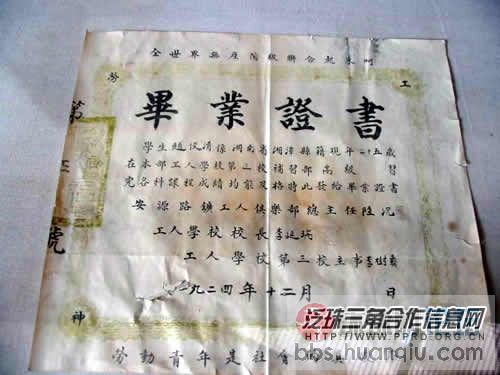 全世界無産階級聯合起來呵
勞 工
畢業證書
學生趙汶清係湖南省湘潭縣籍現年二十五歲
在本部工人學校第三校補習部高級 習
完各科課程成績均能及格特此發給畢業證書
安源路鑛工人俱樂部總主任陸沉
工人學校校長李延瑞
工人學校第三校主事李
一九二四年十二月 日
第
號
神
勞動青年是社會
泛珠三角合作信息网
WWW.PPRD.ORG.CN
bbs.huanqiu.com